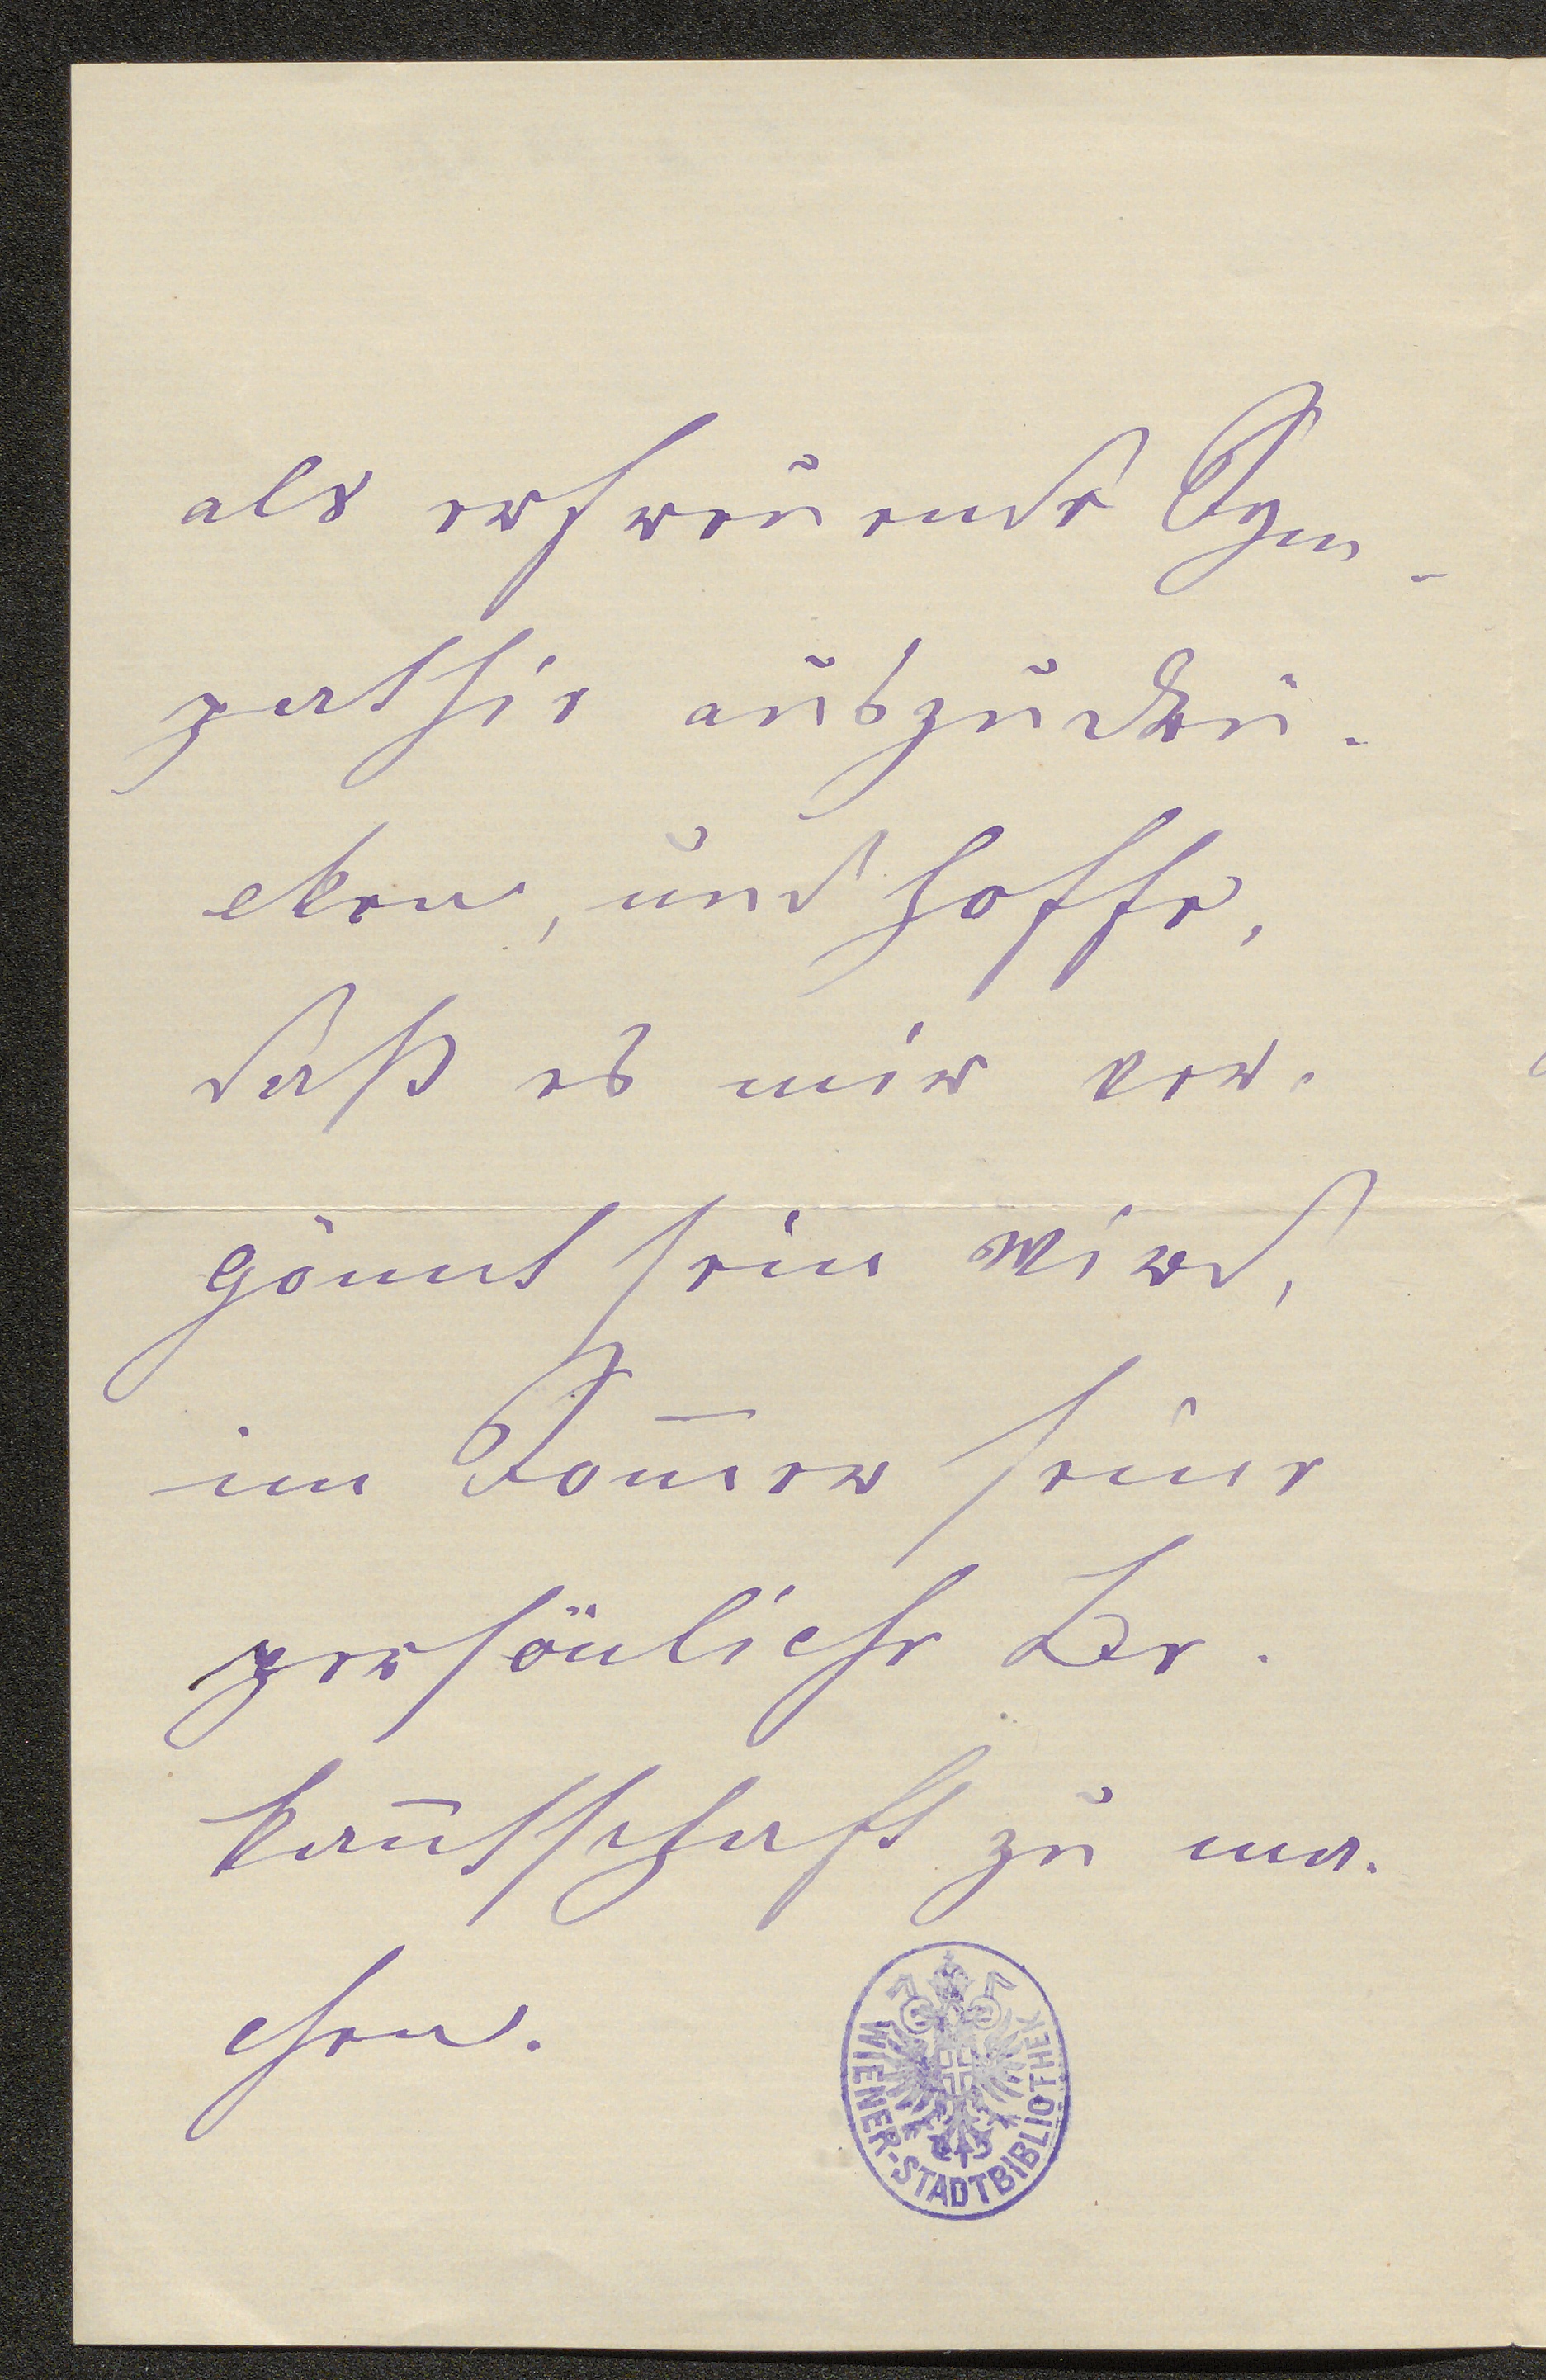 als erfreuende Sym-
pathie auszudrü-
cken, und hoffe,
daß es mir ver-
gönnt sein wird,
im Som̅er seine
persönliche Be-
kan̅tschaft zu ma-
chen.
WIENER-STADTBIBLIOTHEK